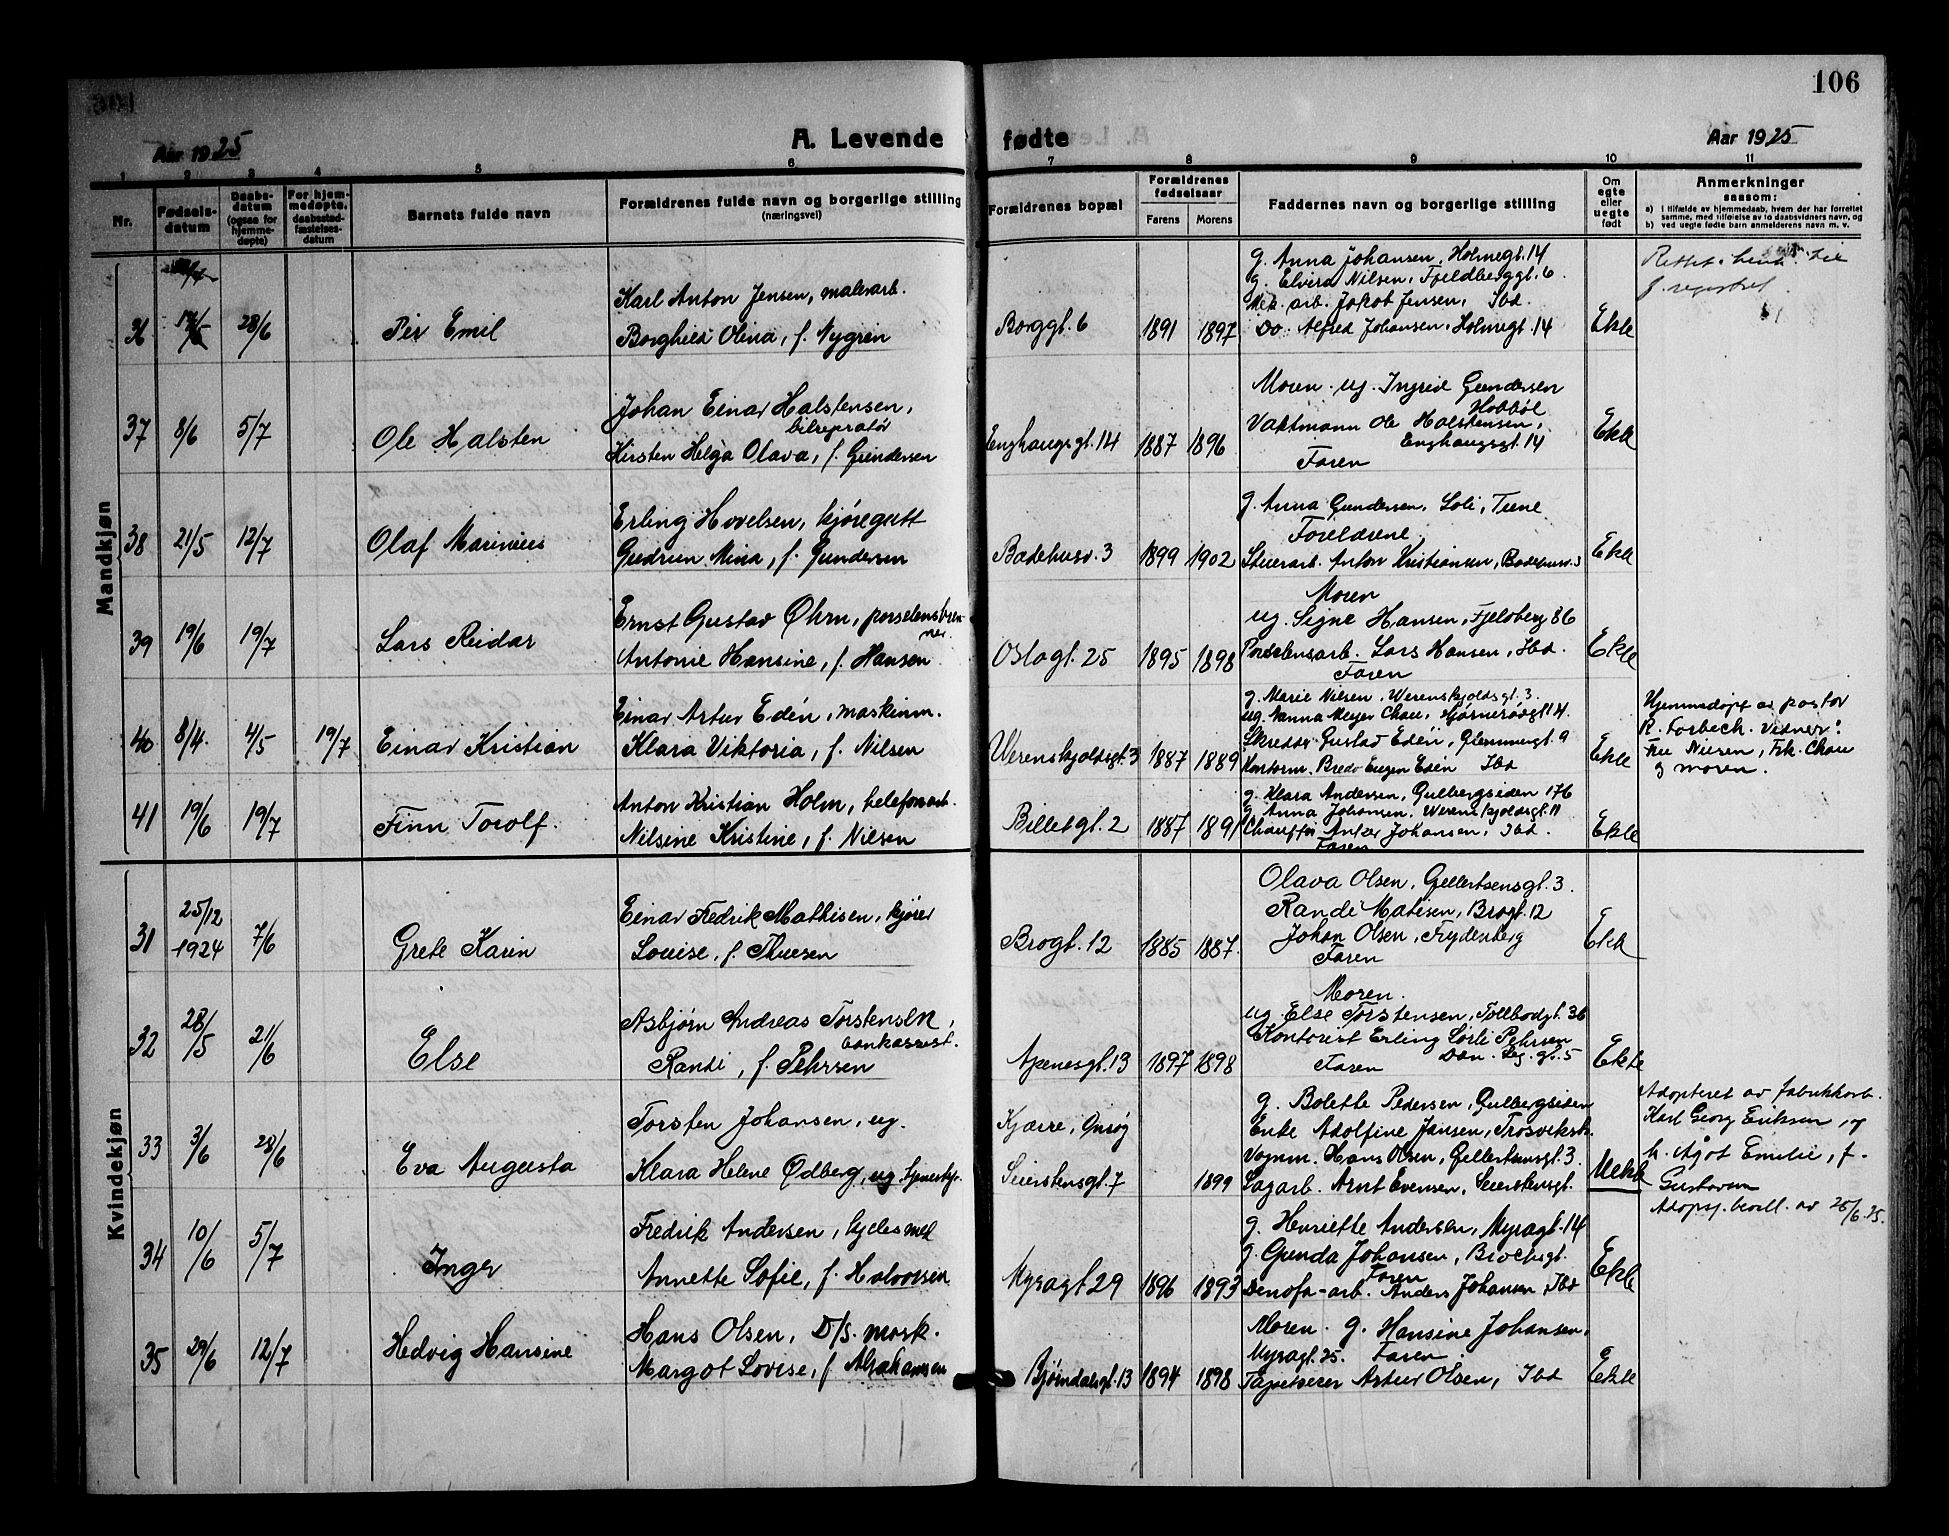 106
Aar 1925
A. Levende fødte
Aar 1925
1 2 3 4 5 6 7 8 9 10 11
Nr.
Fødsels-
datum
Daabs-
datum
(ogsaa for
hjemme-
døpte)
For hjem-
medøpte.
daabsstad-
fæstelses-
datum
Barnets fulde navn
Forældrenes fulde navn og borgerlige stilling
(næringsvei)
Forældrenes bopæl
Forældrenes
fødselsaar
Farens
Morens
Faddernes navn og borgerlige stilling
Om
egte
eller
uegte
født
Anmerkninger
saasom:
a) i tilfælde av hjemmedaab, hvem der har forrettet
samme, med tilføielse av to daabsvidners navn, og
b) ved uegte fødte barn anmelderens navn m. v.
Mandkjøn
36 28/6 Per Emil
Karl Anton Jensen, malerarb.
Borghild Olina, f. Nygren
Borggt. 6 1891 1897
g. Anna Johansen, Holmegt. 14
g. Elvira Nilsen, Fjeldberggt. 6
Mek. arb. Jakob Jensen, Ibd.
Do. Alfred Johansen, Holmegt. 14
Ekte
37 8/6 5/7 Ole Halsten
Johan Einar Halstensen,
bilreparatør
Kirsten Helga Olava, f. Gundersen
Enghaugsgt. 14 1887 1896
Moren. ug. Ingrid Gundersen
Hobbøl
Vaktmann Ole Halstensen,
Enghaugsgt. 14
Faren
Ekte
38 21/5 12/7 Olaf Marinius
Erling Hovelsen, kjøregutt
Gudrun Mina, f. Gundersen
Badehusv. 3 1899 1902
g. Anna Gundersen, Soli, Tune
Foreldrene
Stuerarb. Anton Kristiansen, Badehusv. 3
Ekte
39 19/6 19/7 Lars Reidar
Ernst Gustav Øhrn, porselensbren-
ner.
Antonie Hansine, f. Hansen
Oslogt. 25 1895 1898
Moren
ug. Signe Hansen, Fjeldberg 86
Porselensarb. Lars Hansen, Ibd.
Faren
Ekte
40 8/4. 4/5 19/7 Einar Kristian
Einar Artur Edén, maskinm.
Klara Viktoria, f. Nilsen
Werenskjoldsgt. 3 1887 1889
g. Marie Nilsen, Werenskjoldsgt. 3.
ug. Nanna Meyer Chau, 14.
Skredder Gustav Edén, Glemmengt. 9
Kontorm. Bredo Eugen Edén Ibd
Ekte
Hjemmedøpt av pastor
R. Forbech. Vidner:
Fru Nilsen, Frk. Chau
og moren.
41 19/6 19/7 Finn Torolf.
Anton Kristian Holm, telefonarb.
Nilsine Kristine, f. Nilsen
Billetgt. 2 1887 1891
g. Klara Andersen, Gulbergsiden 176
g. Anna Johansen, Werenskjoldsgt. 11
Chauffør Anker Johansen, Ibd.
Faren
Ekte
Kvindekjøn
31 25/12 1924 7/6 Grete Karin
Einar Fredrik Mathisen, kjører
Louise, f. Thuesen
Brogt. 12 1885 1887
Olava Olsen, Gellertsensgt. 3.
Randi Matisen, Brogt. 12
Johan Olsen, Frydenberg
Faren
Ekte
32 28/5 21/6 Else
Asbjørn Andreas Torstensen,
bankassist.
Randi, f. Pehrsen
Apenesgt. 13 1897 1898
Moren.
ug. Else Torstensen, Tollbodgt. 36
Kontorist Erling Sørli Pehrsen
Dan. Leg. gt. 5
Faren
Ekte
33 3/6 28/6 Eva Augusta
Torsten Johansen, ug.
Klara Helene Ødberg, ug.
Kjærre, Onsøy
Seierstensgt. 7 1899
g. Bolette Pedersen, Gulbergsiden
Enke Adolfine Jansen, Trosvikstr.
Vognm. Hans Olsen, Gellertsensgt. 3.
Sagarb. Arnt Evensen, Seierstensgt.
Uekte
Adopteret av fabrikkarb.
Karl Georg Eriksen, og
h. Agot Emilie, f.
Gustavsen
Adopsj. bevill. av 25/6 25.
34 10/6 5/7 Inger
Fredrik Andersen, kjelesmed
Annette Sofie, f. Halvorsen
Myragt. 29 1896 1893
g. Henriette Andersen, Myragt. 14
g. Gunda Johansen, Brochsgt.
Faren
Denofa-arb. Anders Johansen, Ibd
Ekte
35 29/6 12/7 Hedvig Hansine
Hans Olsen, D/S. mask.
Margot Lovise, f. Abrahamsen
Bjørndalsgt. 13 1894 1898
Moren. g. Hansine Johansen,
Myragt. 25. Faren.
Tapetserer Artur Olsen, Ibd
Ekte